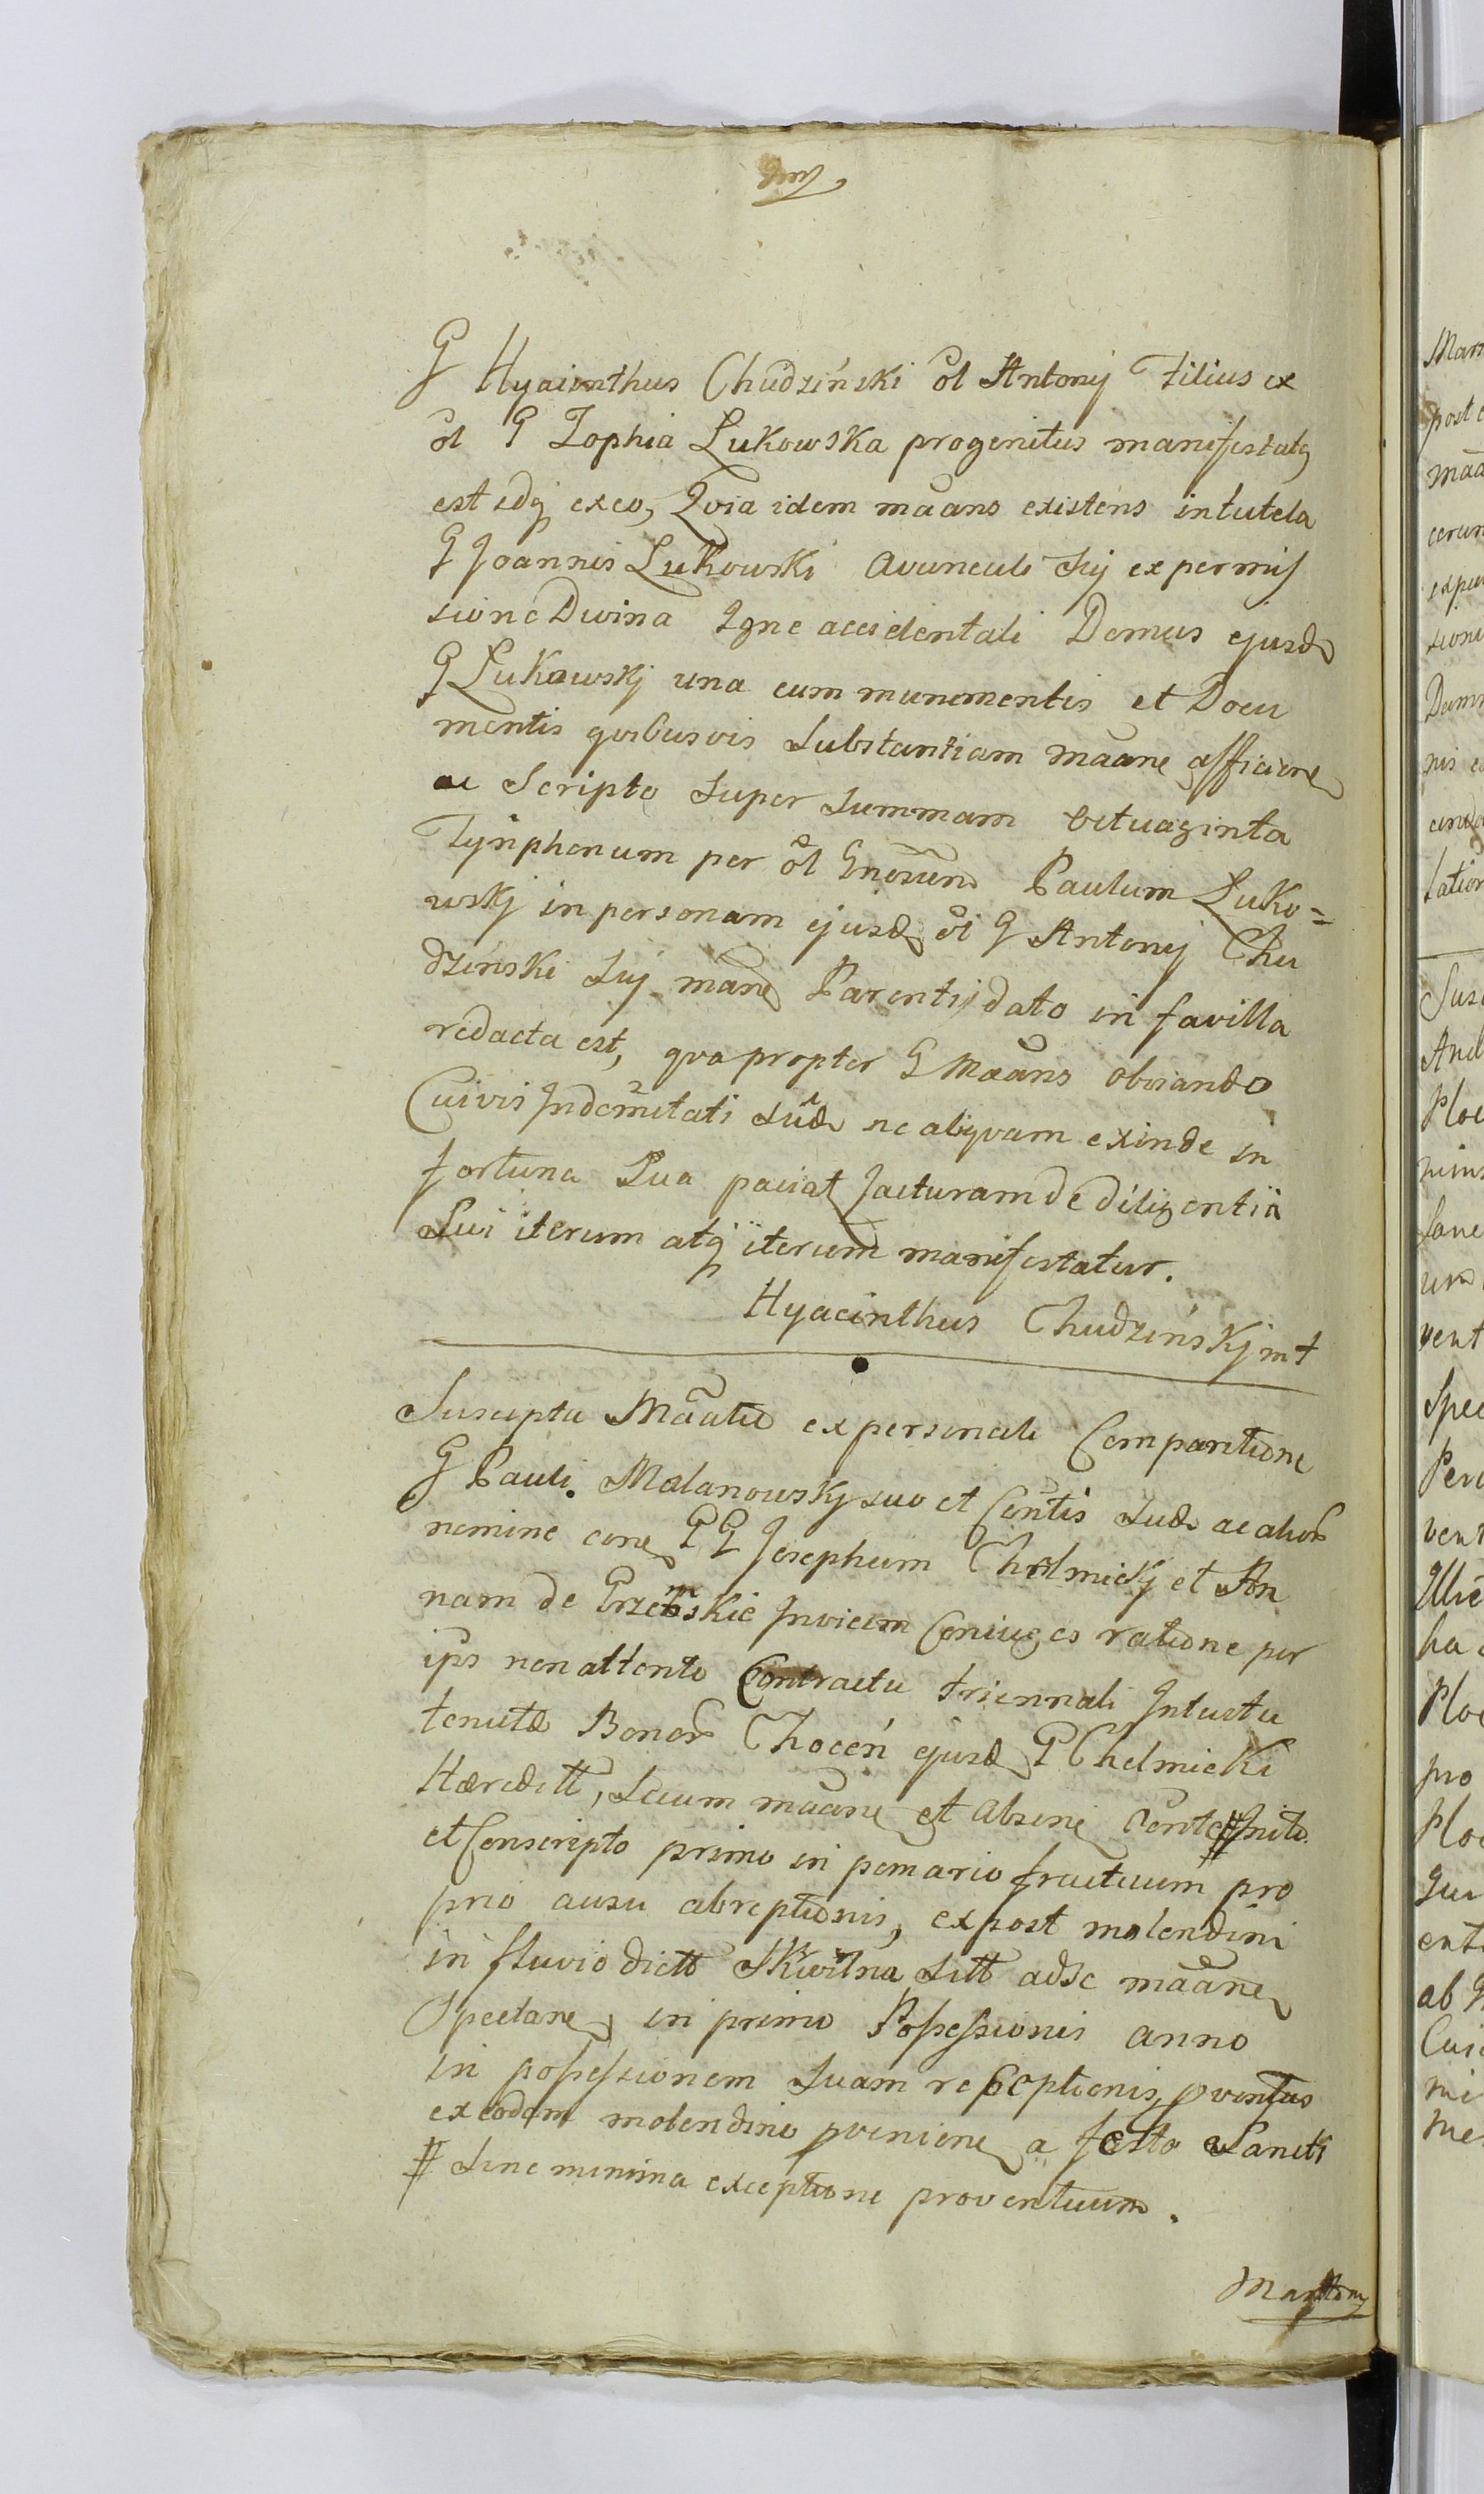 G Hyacinthus Chudziński ol Antonij Filius ex
ol G Zophia Lukowska progenitus manifestatq
est sdq exeo, Qvia idem maans existens in tutela
G Joannis Lukowski Avunculi sŭj ex permis
sione Divina Igne accidentali Domus ejusd
G Lukowskj una cum munimentis et Docu
mentis qvibusvis Substantiam maane afficiene
ac Scripto super summam Octuaginta
Tynphonum per ol Gnosum Paulum Luko=
wskj in personam ejusd ol G Antonij Chu
dzinski suj mane Parentis dato in favilla
redacta est, qvapropter G Maans obviando
Cuivis Indemnitati suæ ne aliqvam exinde in
fortuna Sua paciat Jacturam de diligentiia
Sui iterum atq iterum manifestatur.
Hyacinthus Chudzińskj m +
Suscepta Maatio ex personali Comparitione
G Pauli Malanowskj suo et Contis Suæ ac alior
nomine cone GG Josephum Chelmickj et An
nam de Grzembskie Invicem Coniuges ratione per
ips non attento Contractu triennali Intuitu
tenutæ Bonor Choceń ejusd G Chelmicki
Hæreditt, Secum maane et Absene Conte # Inito
et Conscripto primo in pomario fructuum pro
prio ausu abreptionis, ex post molendini
in fluvio dictt Skwilna sitt adsc maane
Spectane, in primo Possessionis anno
in possessionem suam receptionis, pventus
ex eodem molendino pveniene a festo Sancti
# Sine minima exceptione proventuum.